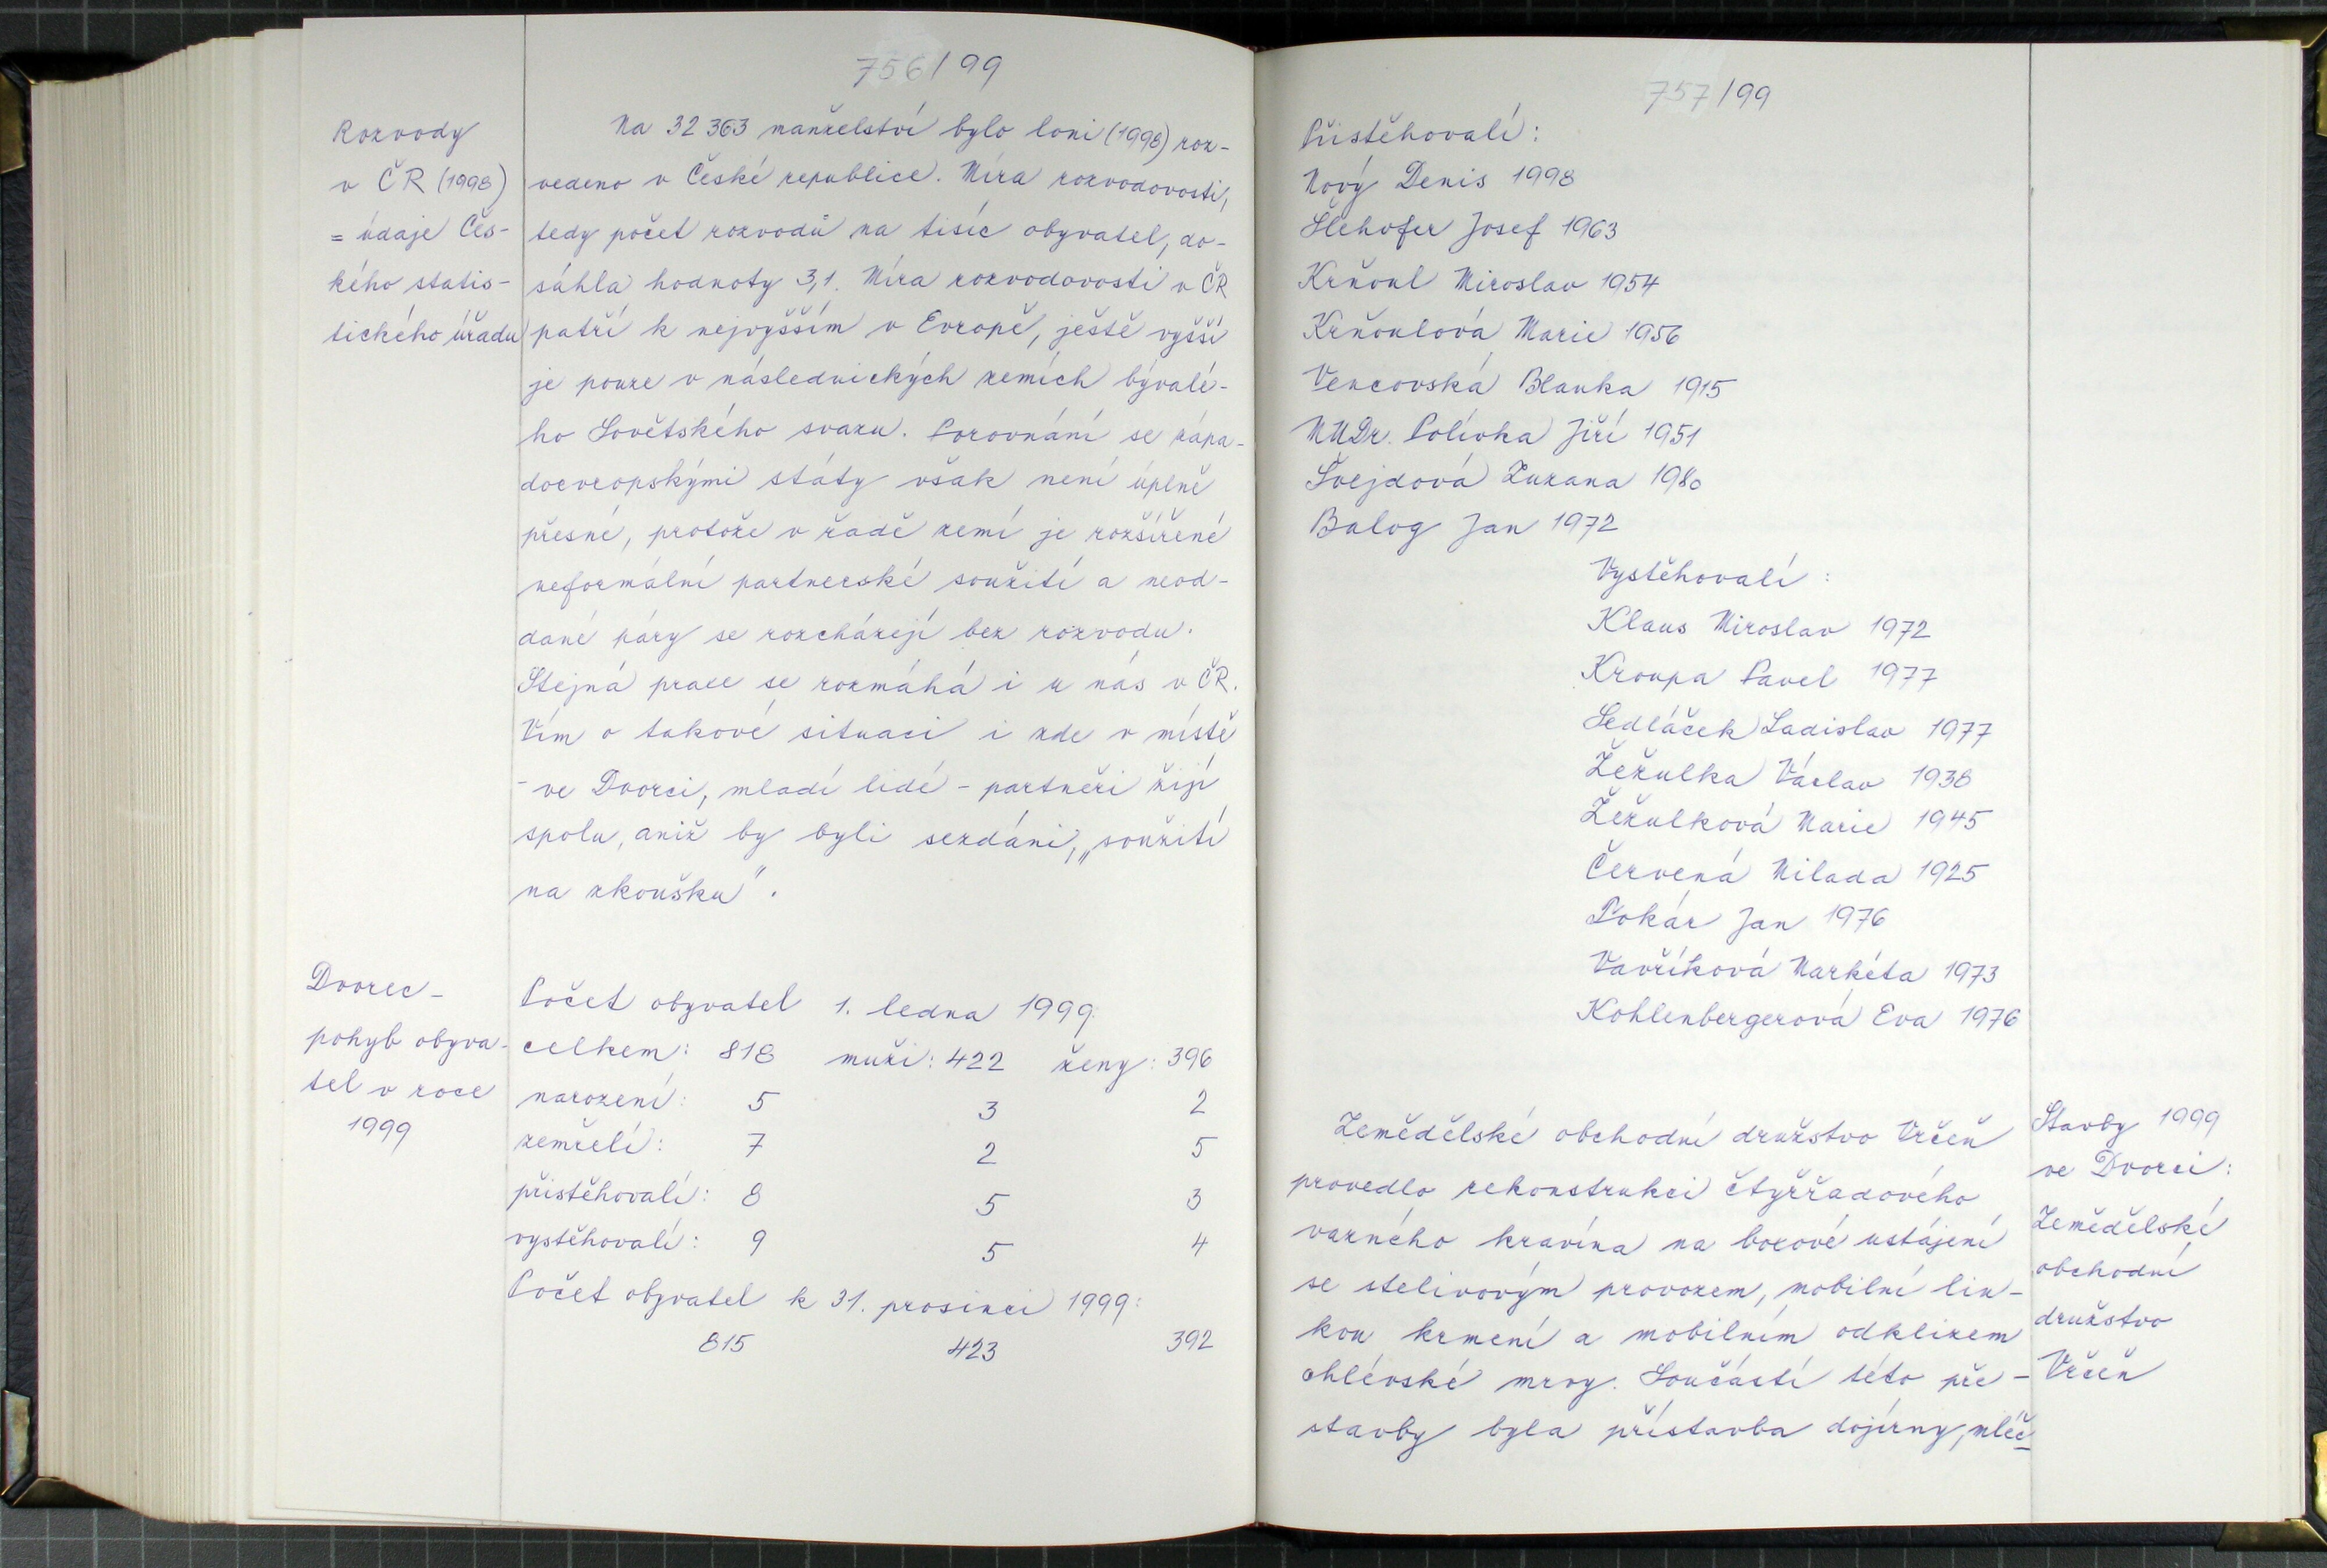 756/99
Rozvody
v ČR (1998)
= údaje Čes-
kého statis-
tického úřadu
Na 32 363 manželství bylo loni (1998) roz-
vedeno v České republice. Míra rozvodovosti,
tedy počet rozvodů na tisíc obyvatel, do-
sáhla hodnoty 3,1. Míra rozvodovosti v ČR
patří k nejvyšším v Evropě, ještě vyšší
je pouze v následnických zemích bývalé-
ho Sovětského svazu. Porovnání se zápa-
doevropskými státy však není úplně
přesné, protože v řadě zemí je rozšířené
neformální partnerské soužití a neod-
dané páry se rozcházejí bez rozvodu.
Stejná praxe se rozmáhá i u nás v ČR.
Vím o takové situaci i zde v místě
- ve Dvorci, mladí lidé - partneři žijí
spolu, aniž by byli sezdáni, „soužití
na zkoušku".
Dvorec -
pohyb obyva-
tel v roce
1999
Počet obyvatel 1. ledna 1999:
celkem: 818 muži: 422 ženy: 396
narození: 5 3 2
zemřelí: 7 2 5
přistěhovalí: 8 5 3
vystěhovalí: 9 5 4
Počet obyvatel k 31. prosinci 1999:
815 423 392
757/99
Přistěhovalí:
Nový Denis 1998
Šlehofer Josef 1963
Krňoul Miroslav 1954
Krňoulová Marie 1956
Vencovská Blanka 1915
MUDr. Polívka Jiří 1951
Švejdová Zuzana 1980
Balog Jan 1972
Vystěhovalí:
Klaus Miroslav 1972
Kroupa Pavel 1977
Sedláček Ladislav 1977
Žežulka Václav 1938
Žežulková Marie 1945
Červená Milada 1925
Jan 1976
Vavříková Markéta 1973
Kohlenbergerová Eva 1976
Zemědělské obchodní družstvo Vrčeň
provedlo rekonstrukci čtyřřadového
vazného kravína na boxové ustájení
se stelivovým provozem, mobilní lin-
kou krmení a mobilním odklizem
chlévské mrvy. Součástí této pře-
stavby byla přístavba dojírny, mléč-
Stavby 1999
ve Dvorci:
Zemědělské
obchodní
družstvo
Vrčeň